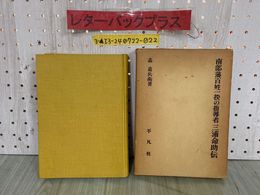 レターパックプラス
3-▲I3-240722-②22
南部藩百姓一揆の指導者 三浦命助伝
森嘉兵衛著
平凡社